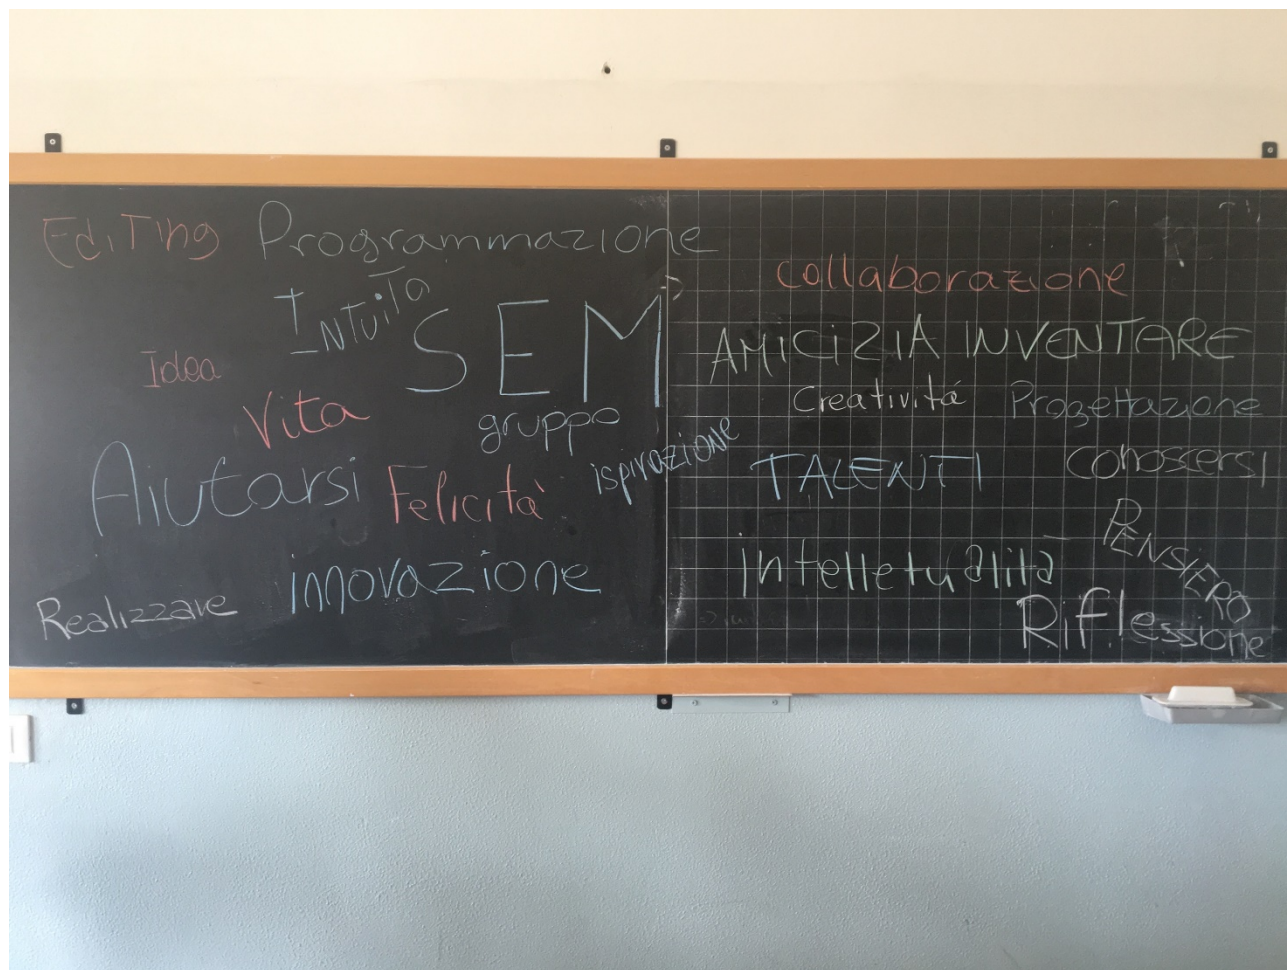 Editing Programmazione
Intuita
SEM
Idea
Vita
gruppo
Aiutarsi Felicità ispirazione
innovazione
Realizzare
collaborazione
AMICIZIA INVENTARE
Creativitá Progettazione
TALENTI conoscersi
intelletualità PENSIERO
Riflessione